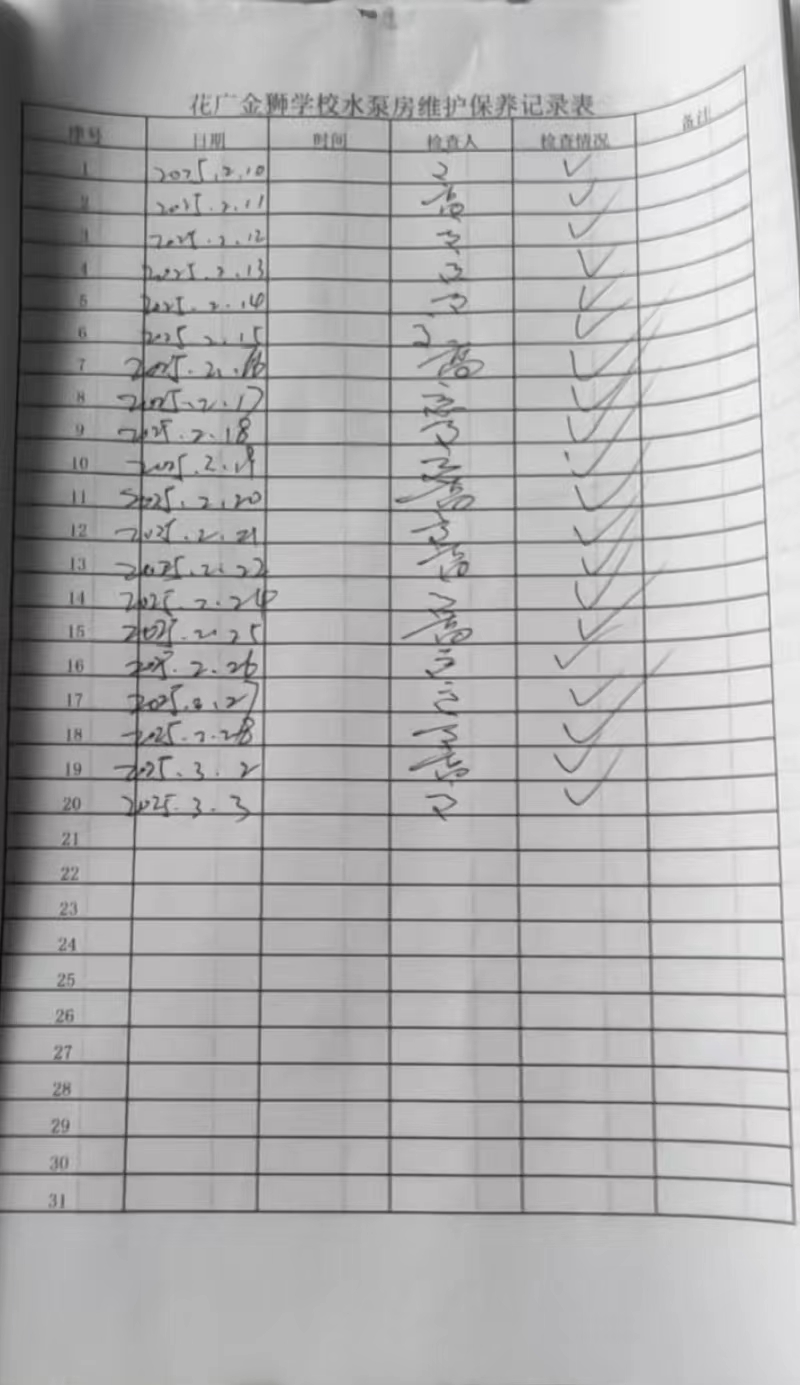 花广金狮学校水泵房维护保养记录表
序号 日期 时间 检查人 检查情况 备注
1 2025.2.10 ✓
2 2025.2.11 ✓
3 2025.2.12 ✓
4 2025.2.13 ✓
5 2025.2.14 ✓
6 2025.2.15 ✓
7 2025.2.16 ✓
8 2025.2.17 ✓
9 2025.2.18 ✓
10 2025.2.19 ✓
11 2025.2.20 ✓
12 2025.2.21 ✓
13 2025.2.22 ✓
14 2025.2.24 ✓
15 2025.2.25 ✓
16 2025.2.26 ✓
17 2025.2.27 ✓
18 2025.2.28 ✓
19 2025.3.2 ✓
20 2025.3.3 ✓
21
22
23
24
25
26
27
28
29
30
31